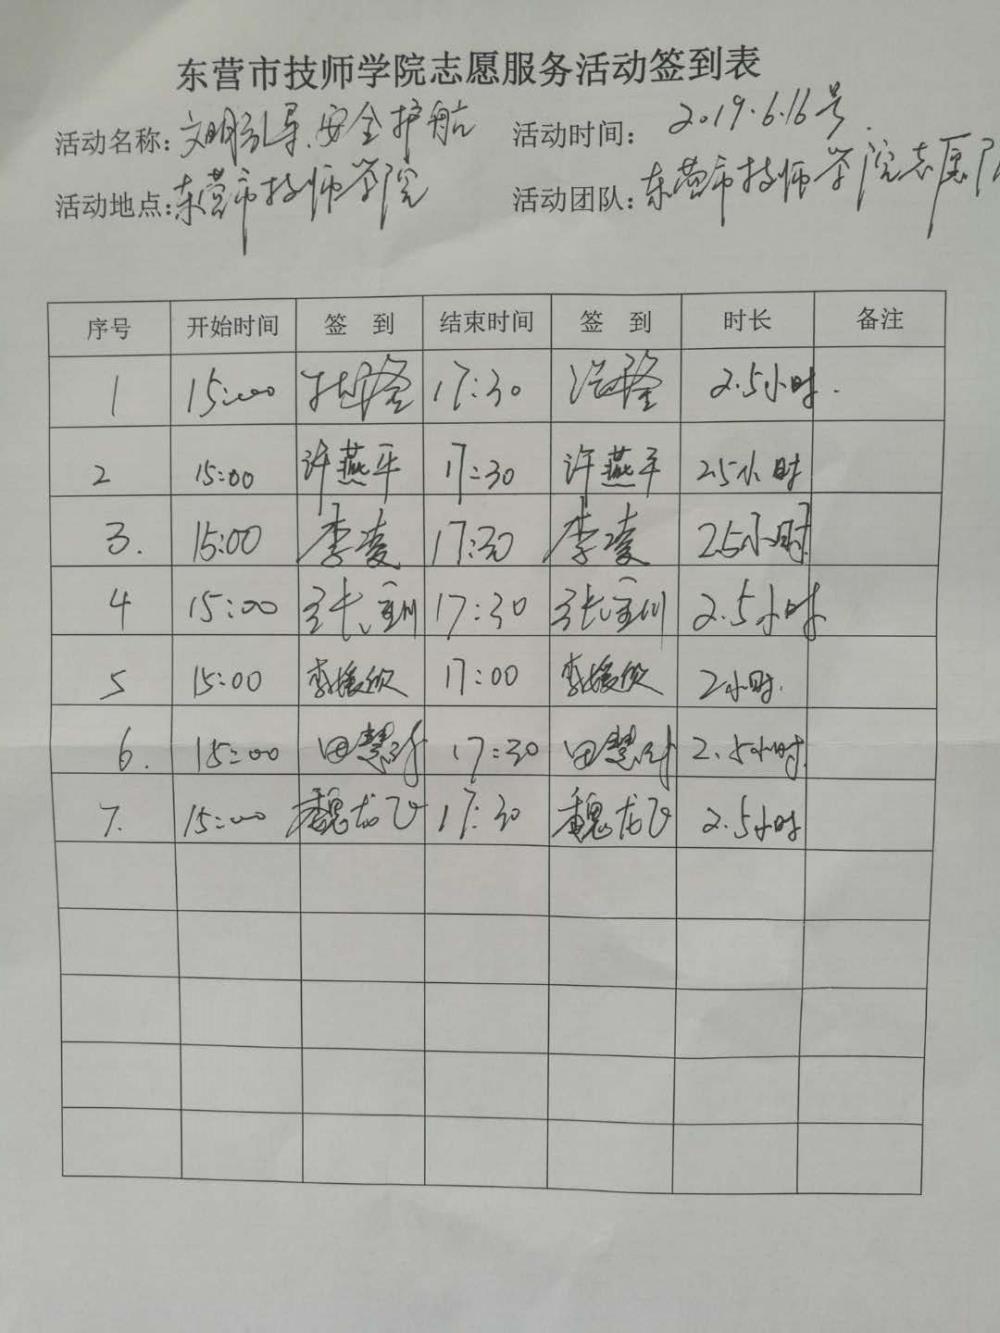 东营市技师学院志愿服务活动签到表
活动名称：文明引导、安全护航 活动时间： 2019.6.16号.
活动地点：东营市技师学院 活动团队：东营市技师学院志愿
序号 开始时间 签 到 结束时间 签 到 时长 备注
1 15:00 17:30 2.5小时.
2 15:00 许燕平 17:30 许燕平 2.5小时
3. 15:00 李凌 17:30 李凌 2.5小时
4 15:00 17:30 2.5小时
5 15:00 17:00 2小时.
6. 15:00 田慧 17:30 田慧 2.5小时
7. 15:00 魏龙飞 17:30 魏龙飞 2.5小时